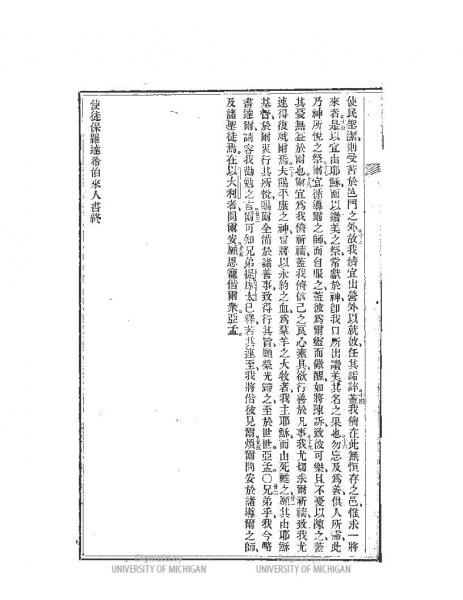 使民聖潔則受苦於邑門之外故我儕宜出營外以就彼任其詬誶蓋我儕在此無恒存之邑惟求一將
來者是以宜由耶穌而以讚美之祭常獻於神卽我口所出讚美其名之果也勿忘及爲善供人所需此
乃神所悅之祭爾宜循導爾之師而自服之蓋彼爲爾靈而儆醒如將陳訴致彼可樂且不憂以陳之蓋
其憂無益於爾也爾宜爲我儕祈禱蓋我儕信己之良心素具欲行善於凡事我尤切求爾祈禱致我尤
速得復就爾焉夫賜平康之神曾將以永約之血爲羣羊之大牧者我主耶穌而由死甦之願其由耶穌
基督於爾衷行其所悅賜爾全備於諸善事致得行其旨願榮光歸之至於世世亞孟〇兄弟乎我今略
書達爾請容我勸勉之言爾可知兄弟提摩太已釋若其速至我將偕彼見爾煩爾問安於諸導爾之師
及諸聖徒焉在以大利者問爾安願恩寵偕爾衆亞孟
使徒保羅達希伯來人書終
UNIVERSITY OF MICHIGAN
UNIVERSITY OF MICHIGAN